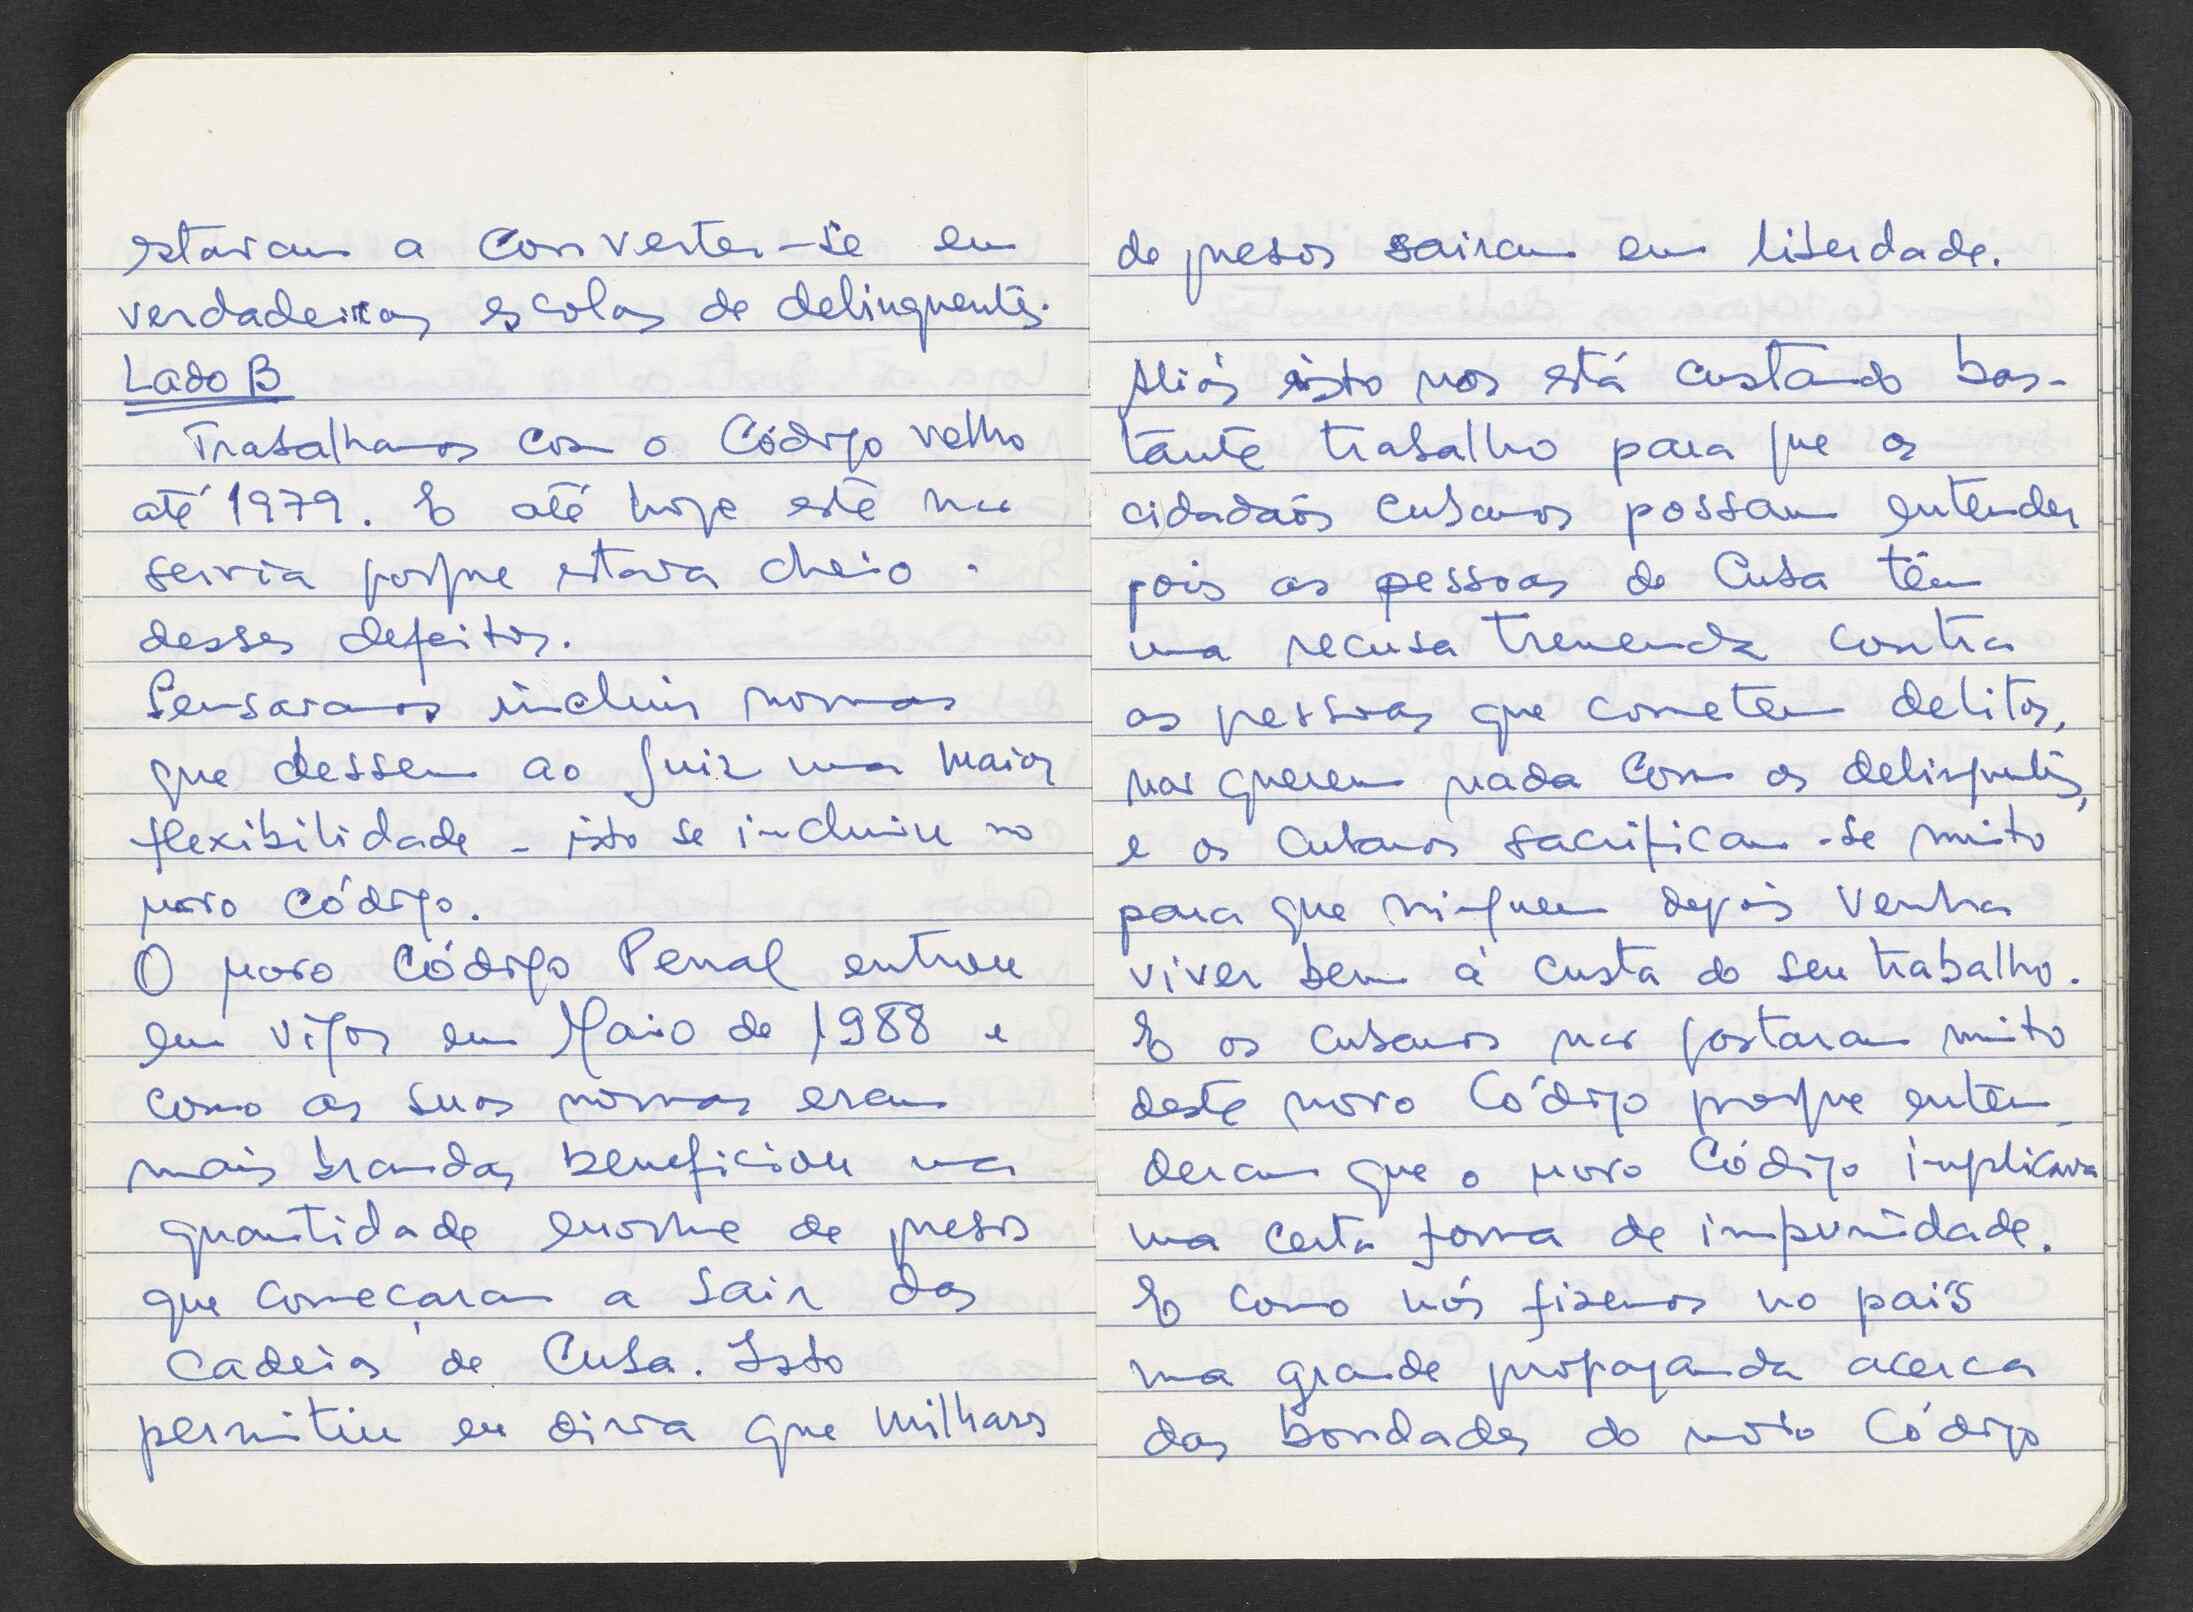 estavam a converter-se em
verdadeiras escolas de delinquentes.
Lado B
Trabalhamos com o Código velho
até 1979. E até hoje este não
servia porque estava cheio
desses defeitos.
Pensavamos incluir normas
que dessem ao Juiz uma maior
flexibilidade - isto se incluiu no
novo Código.
O novo Código Penal entrou
em vigor em Maio de 1988 e
como as suas normas eram
mais brandas beneficiou uma
quantidade enorme de presos
que começaram a sair das
cadeias de Cuba. Isto
permitiu eu diria que milhares
de presos sairam em liberdade.
Aliás isto nos está custando bas-
tante trabalho para que os
cidadãos cubanos possam entender
pois as pessoas de Cuba têm
uma recusa tremenda contra
as pessoas que cometem delitos,
não querem nada com os delinquentes,
e os cubanos sacrificam-se muito
para que ninguem depois venha
viver bem á custa do seu trabalho.
E os cubanos não gostaram muito
deste novo Código porque enten-
deram que o novo Código implicava
uma certa forma de impunidade.
E como nós fizemos no país
uma grande propaganda acerca
das bondades do novo Código